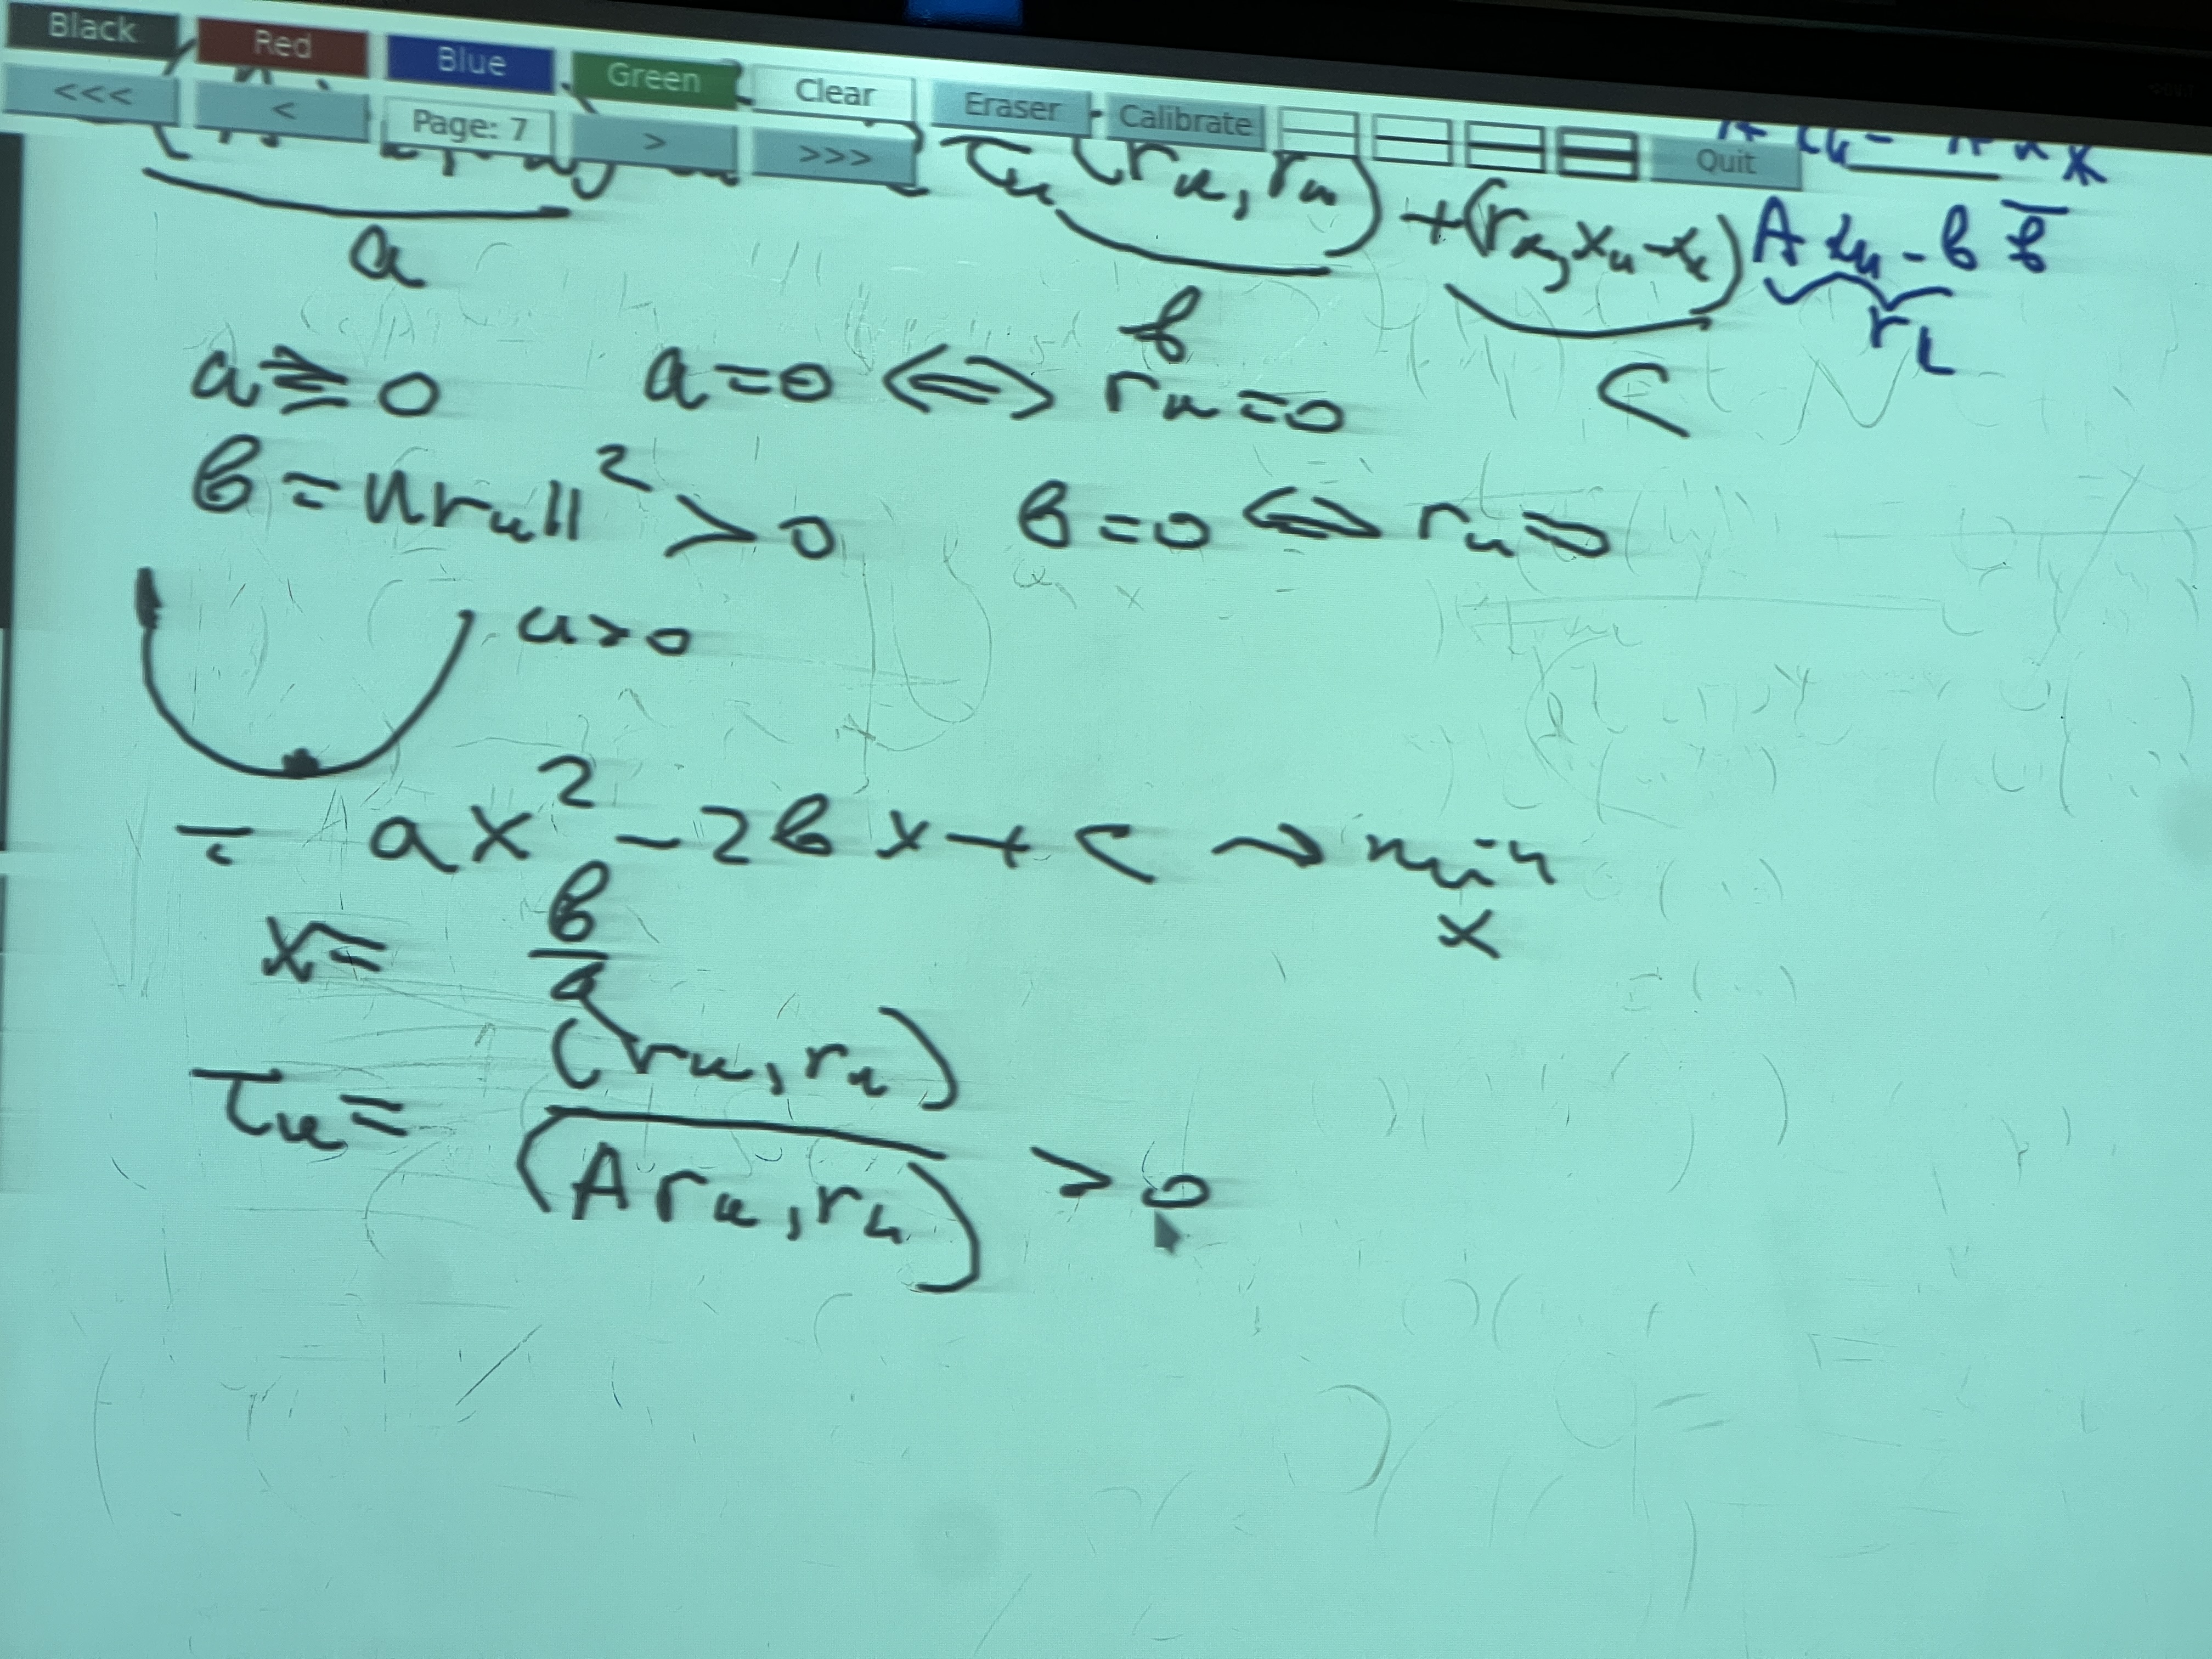 Black Red Blue Green Clear Eraser Calibrate
<<< < Page: 7 > >>> Quit
τₖ(rₖ, rₖ) + (rₖ, xₖ - x) Axₖ - b b
a b c rₖ
a ≥ 0 a = 0 ⟺ rₖ = 0
b = ||rₖ||² > 0 b = 0 ⟺ rₖ = 0
a > 0
= ax² - 2bx + c → min
x
x = b/a
τₖ = (rₖ, rₖ)/(Arₖ, rₖ) > 0